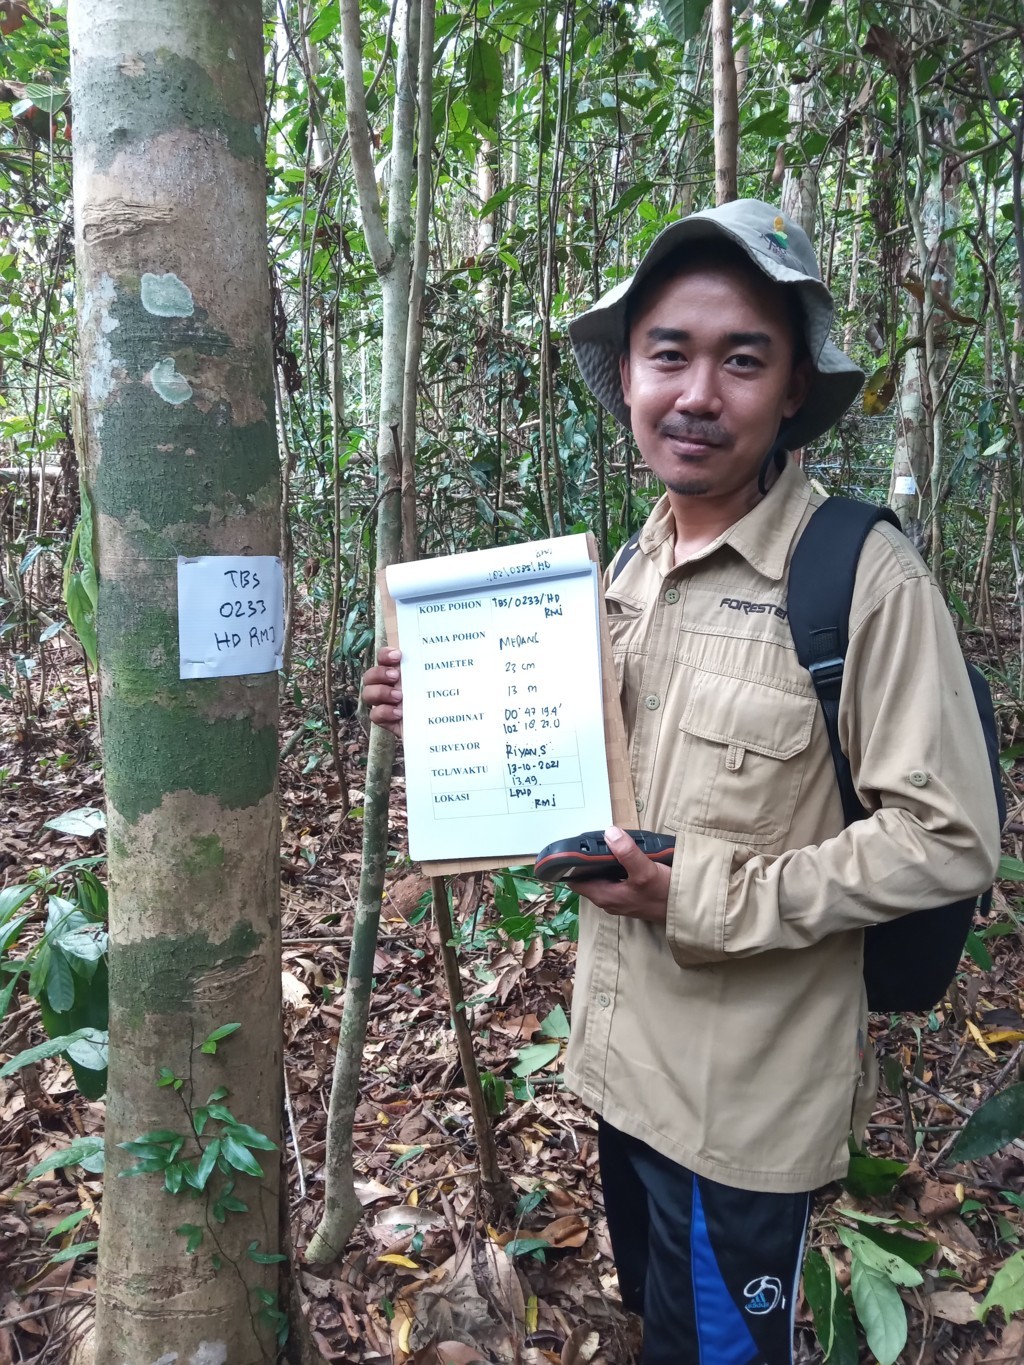 TBS
0233
HD RMJ
KODE POHON TBS/0233/HD
RMJ
NAMA POHON MEDANG
DIAMETER 23 cm
TINGGI 13 m
KOORDINAT 00° 47' 19.4"
102° 18' 20.0
SURVEYOR RIYAN.S
TGL/WAKTU 13-10-2021
13.49
LOKASI LPHD
RMJ
FORESTER